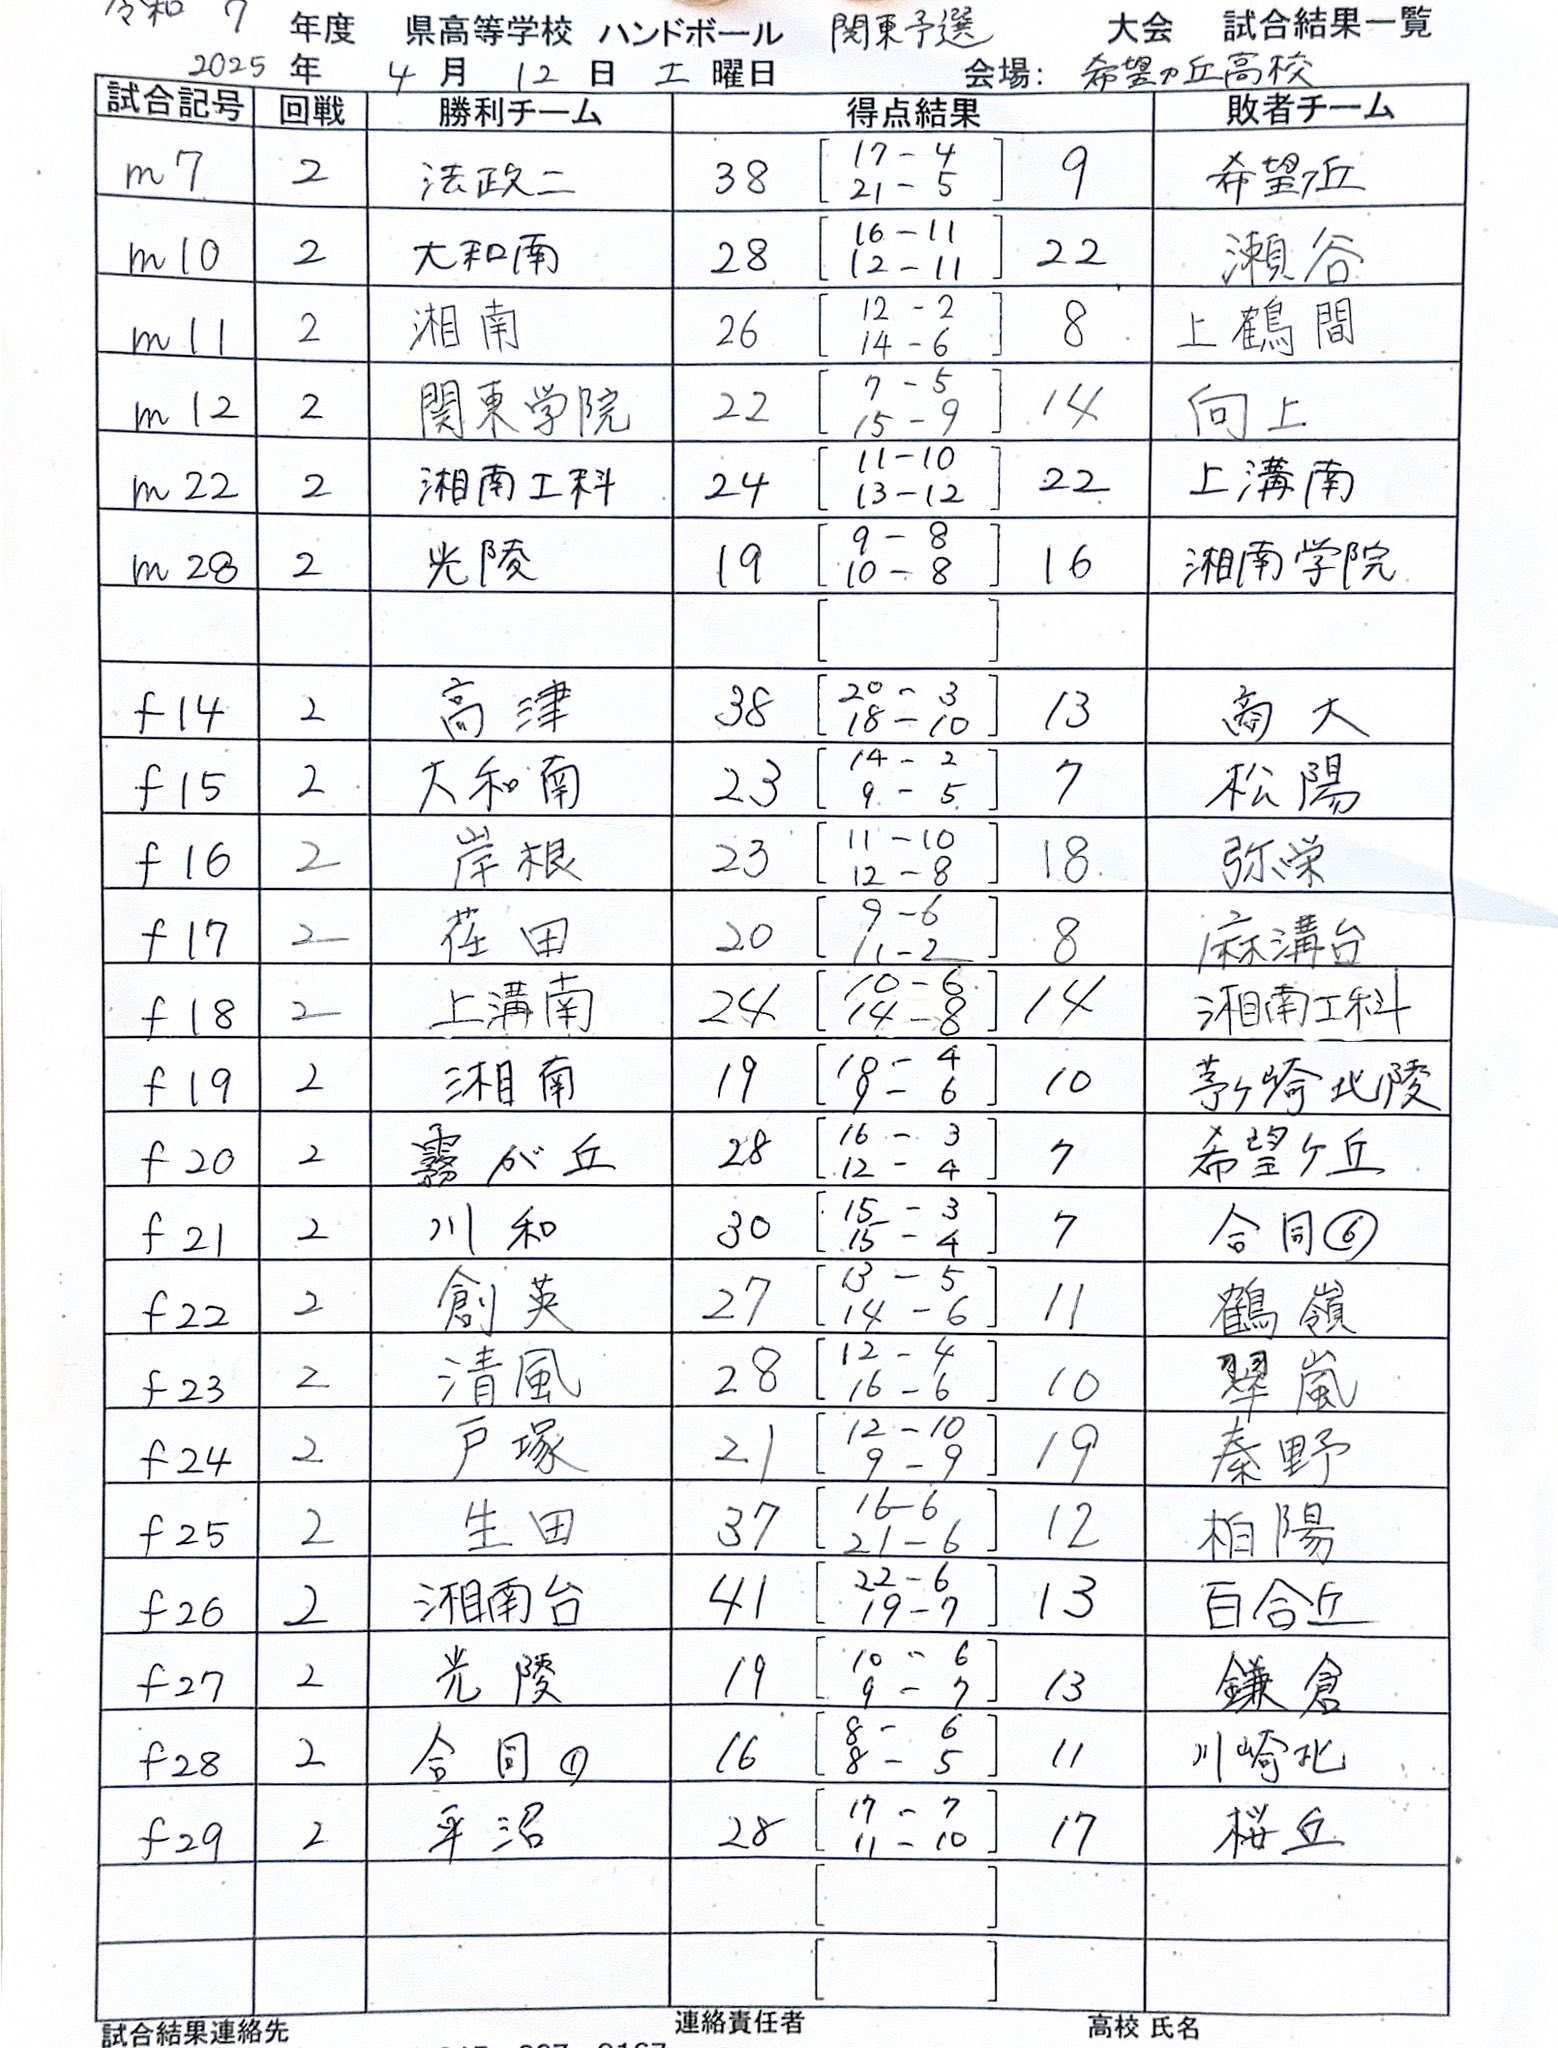 令和 7 年度 県高等学校 ハンドボール 関東予選 大会 試合結果一覧
2025 年 4 月 12 日 土 曜日 会場: 希望ヶ丘高校
試合記号 回戦 勝利チーム 得点結果 敗者チーム
m7 2 法政二 38 [17-4 21-5] 9 希望ヶ丘
m10 2 大和南 28 [16-11 12-11] 22 瀬谷
m11 2 湘南 26 [12-2 14-6] 8 上鶴間
m12 2 関東学院 22 [7-5 15-9] 14 向上
m22 2 湘南工科 24 [11-10 13-12] 22 上溝南
m28 2 光陵 19 [9-8 10-8] 16 湘南学院
[ ]
f14 2 高津 38 [20-3 18-10] 13 商大
f15 2 大和南 23 [14-2 9-5] 7 松陽
f16 2 岸根 23 [11-10 12-8] 18 弥栄
f17 2 荏田 20 [9-6 11-2] 8 麻溝台
f18 2 上溝南 24 [10-6 14-8] 14 湘南工科
f19 2 湘南 19 [10-4 9-6] 10 茅ヶ崎北陵
f20 2 霧が丘 28 [16-3 12-4] 7 希望ヶ丘
f21 2 川和 30 [15-3 15-4] 7 合同⑥
f22 2 創英 27 [13-5 14-6] 11 鶴嶺
f23 2 清風 28 [12-4 16-6] 10 翠嵐
f24 2 戸塚 21 [12-10 9-9] 19 秦野
f25 2 生田 37 [16-6 21-6] 12 柏陽
f26 2 湘南台 41 [22-6 19-7] 13 百合丘
f27 2 光陵 19 [10-6 9-7] 13 鎌倉
f28 2 合同① 16 [8-6 8-5] 11 川崎北
f29 2 平沼 28 [17-7 11-10] 17 桜丘
[ ]
[ ]
試合結果連絡先 連絡責任者 高校 氏名